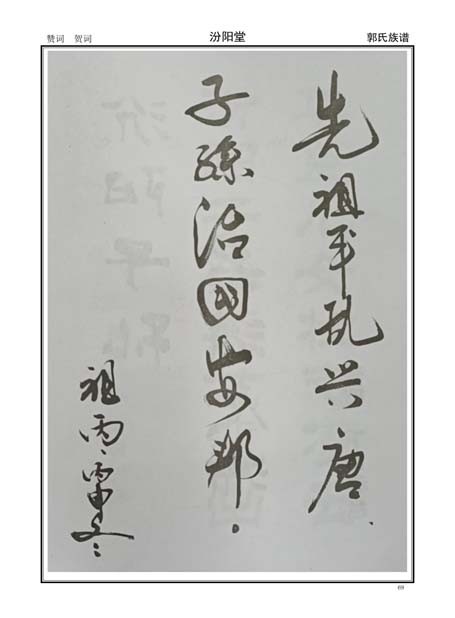 赞词 贺词
汾阳堂
郭氏族谱
先祖平乱兴唐
子孫治国安邦
祖丙丙申冬
69